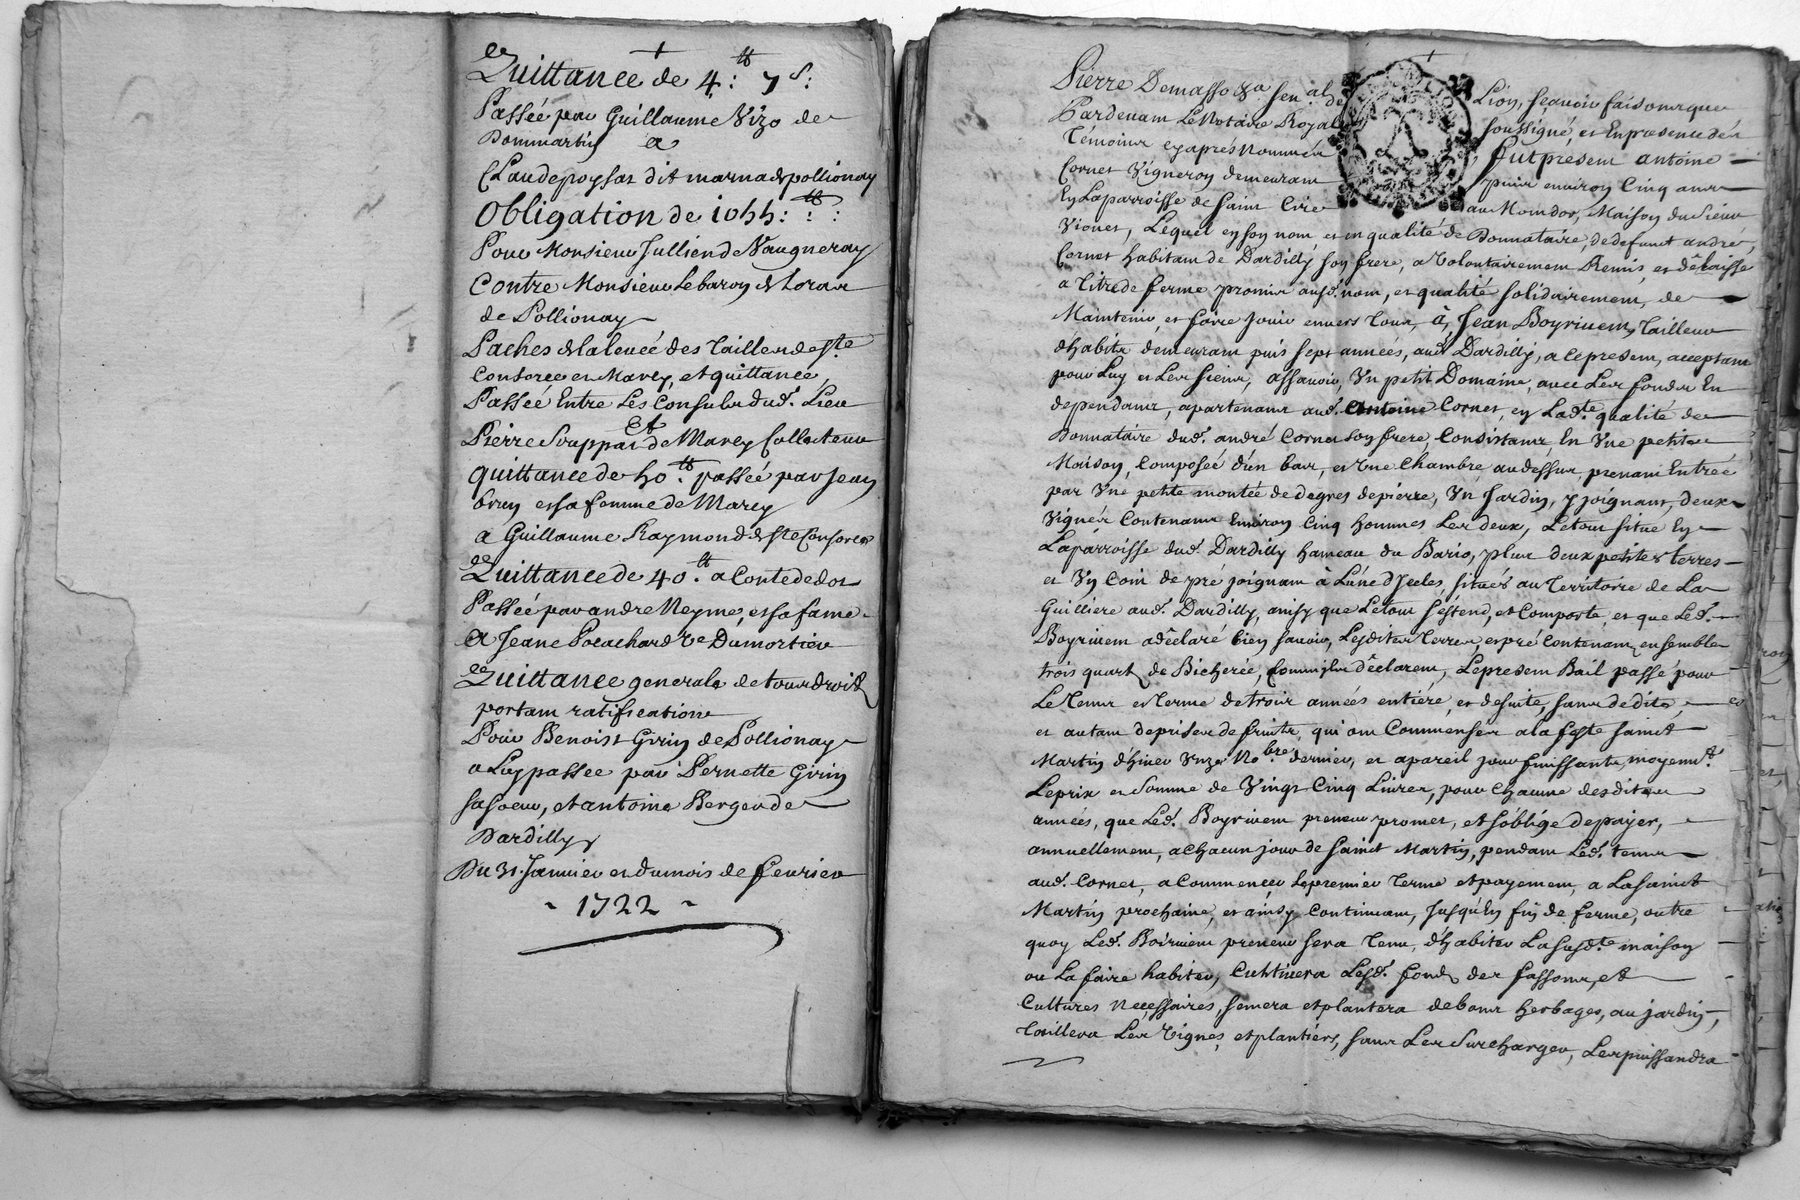 +
Quittance de 4:₶ 7 s:
Passée par Guillaume Vizo de
Dommartin a
Claude poysat dit marna de pollionay
Obligation de 1044:₶ : :
Pour Monsieur Jullien de Vaugneray
Contre Monsieur Le baron de Loras
de Pollionay
Paches de la levée des Tailles de Ste
Consorce et Marcy, et quittance
Passée Entre Les Consuls dud. Lieu
et
Pierre Souppat de Marcy Collecteur
quittance de 40.₶ passée par Jean
brun et sa femme de Marcy
a Guillaume Raymond de Ste Consorce
Quittance de 40.₶ a Conte de dot
Passée par andre Neyme, et sa fame
a Jeane Pocachard Ve Dumortier
Quittance generale de tous droits
portant ratification
Pour Benoist Girin de Pollionay
a Luy passee par Pernette Girin
sa soeur, et antoine Berger de
Dardilly
Du 31. Janvier et du mois de fevrier
~ 1722 ~
+
Pierre Demasso &a. Sen.al de Lion, scavoir faisons que
Pardevant Le Notaire Royal soussigné, et En presence des
Témoins cy apres Nommés fut présent antoine
Cornet Vigneron demeurant puis environ Cinq ans
En La parroisse de saint Cire au Montdor, Maison du Sieur
Vionet, Lequel en son nom et en qualité de Donnataire, de defunct andré,
Cornet habitant de Dardilly son frere, a Volontairement Remis, et délaissé
a Titre de ferme promis ausd. nom, et qualité solidairement, de
Maintenir, et faire Jouir envers Tous, à, Jean Boyrivent, Tailleur
d'habits demeurant puis sept années, aud. Dardilly, a ce present, acceptant
pour Luy et Les siens, assavoir, Un petit Domaine, avec Les fonds En
dependant, apartenant aud. Antoine Cornet, en Lad.te qualité de
Donnataire dud. andré Cornet son frere, Consistant En Une petite
Maison, Composée d'un bas, et Une Chambre au dessus, prenant Entrée
par Une petite montée de degres de pierre, Un Jardin, y joignant, deux
Vignes Contenant Environ Cinq hommes Les deux, Le tout situé En
La parroisse dud. Dardilly hameau du Bario, plus deux petites terres
et Un Coin de pré joignant à L'une d'Jcelles, situés au Territoire de La
Guilliere aud. Dardilly, ainsy que Le tout s'éstend, et Comporte, et que Led.
Boyrivent a déclaré bien scavoir, Lesdites Terres, et pré Contenant, ensemble
trois quart de Bicherée, Comme ils déclarent, Le present Bail passé pour
Le Tems et Terme de trois années entiere, et de suite, sans dedite,
et autant de prises de fruits, qui ont Commensés a la feste saint
Martin d'hiver Unze No.bre dernier, et a pareil jour finissants, moyenn.t
Le prix et Somme de Vingt Cinq Livres, pour Chacune desdites
années, que Led. Boyrivent preneur promet, et s'oblige de payer,
annuellement, a Chacun jour de Saint Martin, pendant Led. tems
aud. Cornet, a Commencer Le premier Terme et payement, a La saint
Martin prochaine, et ainsy Continuant, Jusqu'En fin de ferme, outre
quoy Led. Boirivent preneur sera Tenu, d'habiter La susd.te maison
ou La faire habiter, Cultivera Lesd. fonds des fassons, et
Cultures Necessaires, semera et plantera de bons herbages, au jardin,
Taillera Les Vignes, et plantiers, sans Les Surcharger, Les puissandra